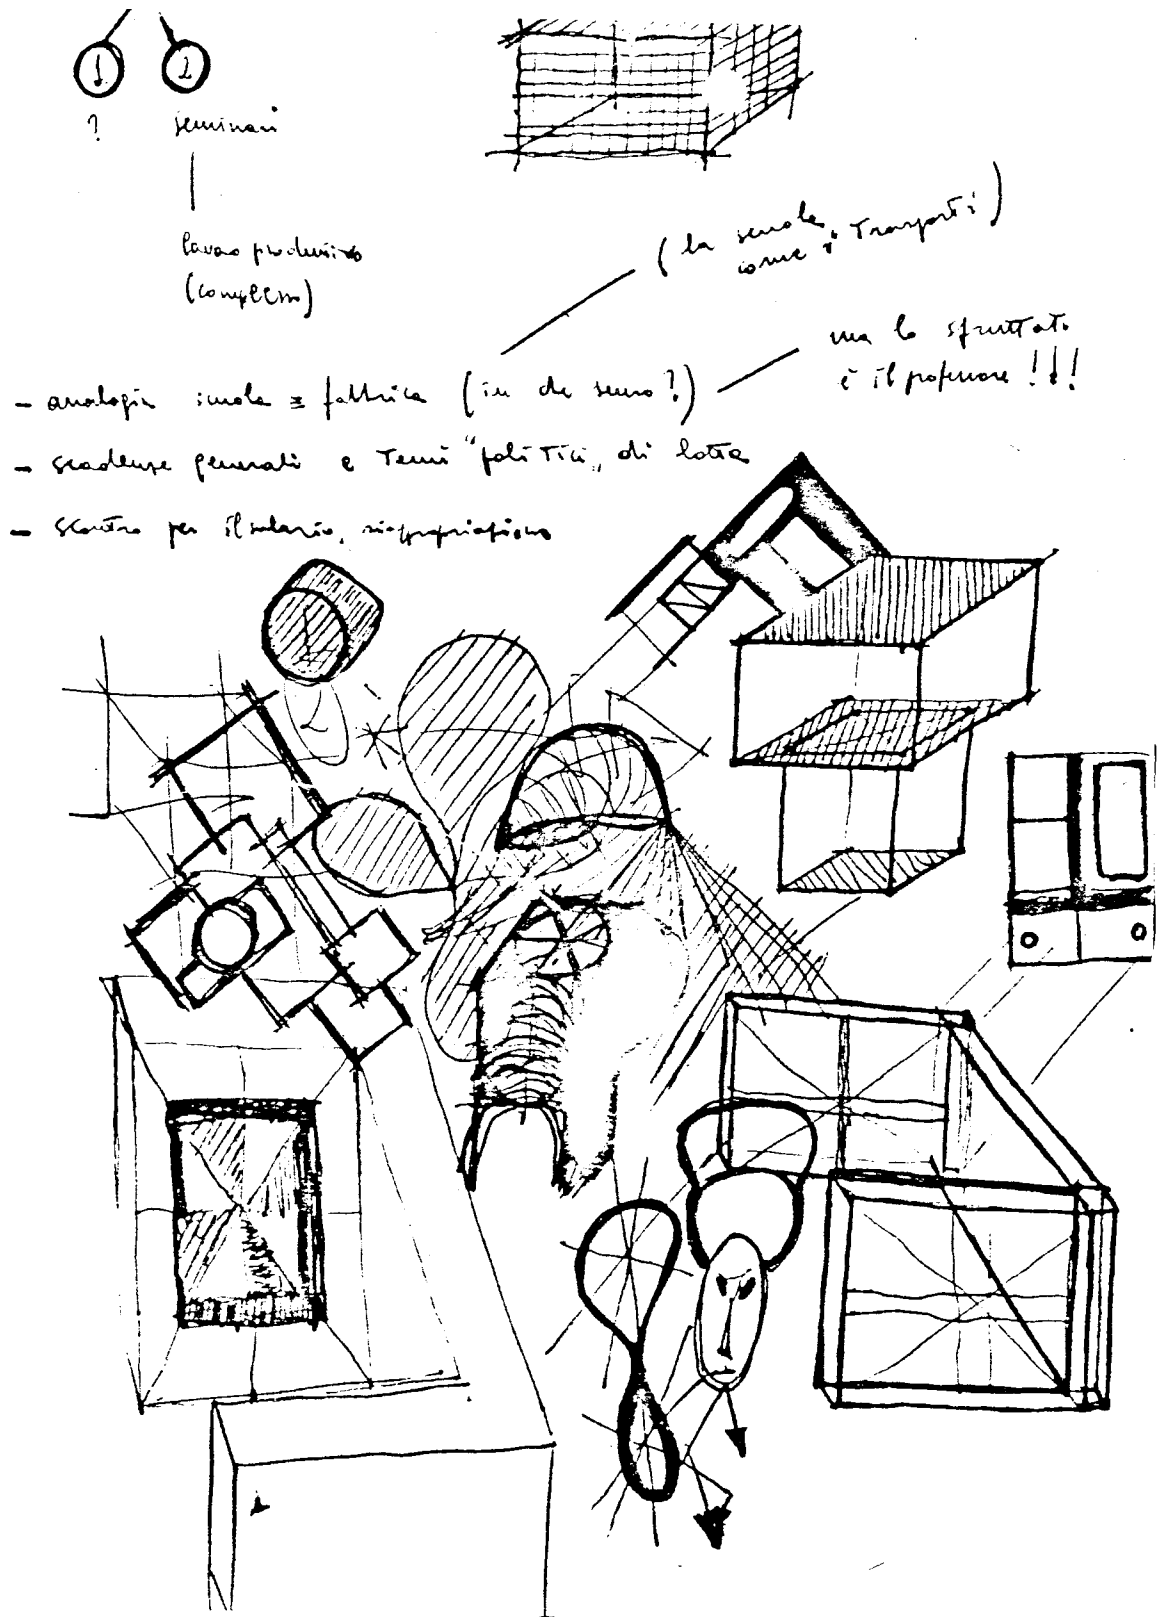 1 2
? seminari
lavoro produttivo
(complesso)
(la scuola
come i Trasporti)
ma lo sfruttato
è il professore !!!
- analogia scuola = fabbrica (in che senso?)
- scadenze generali e Temi "politici" di lotta
- scontro per il salario, riappropriazione
1
2